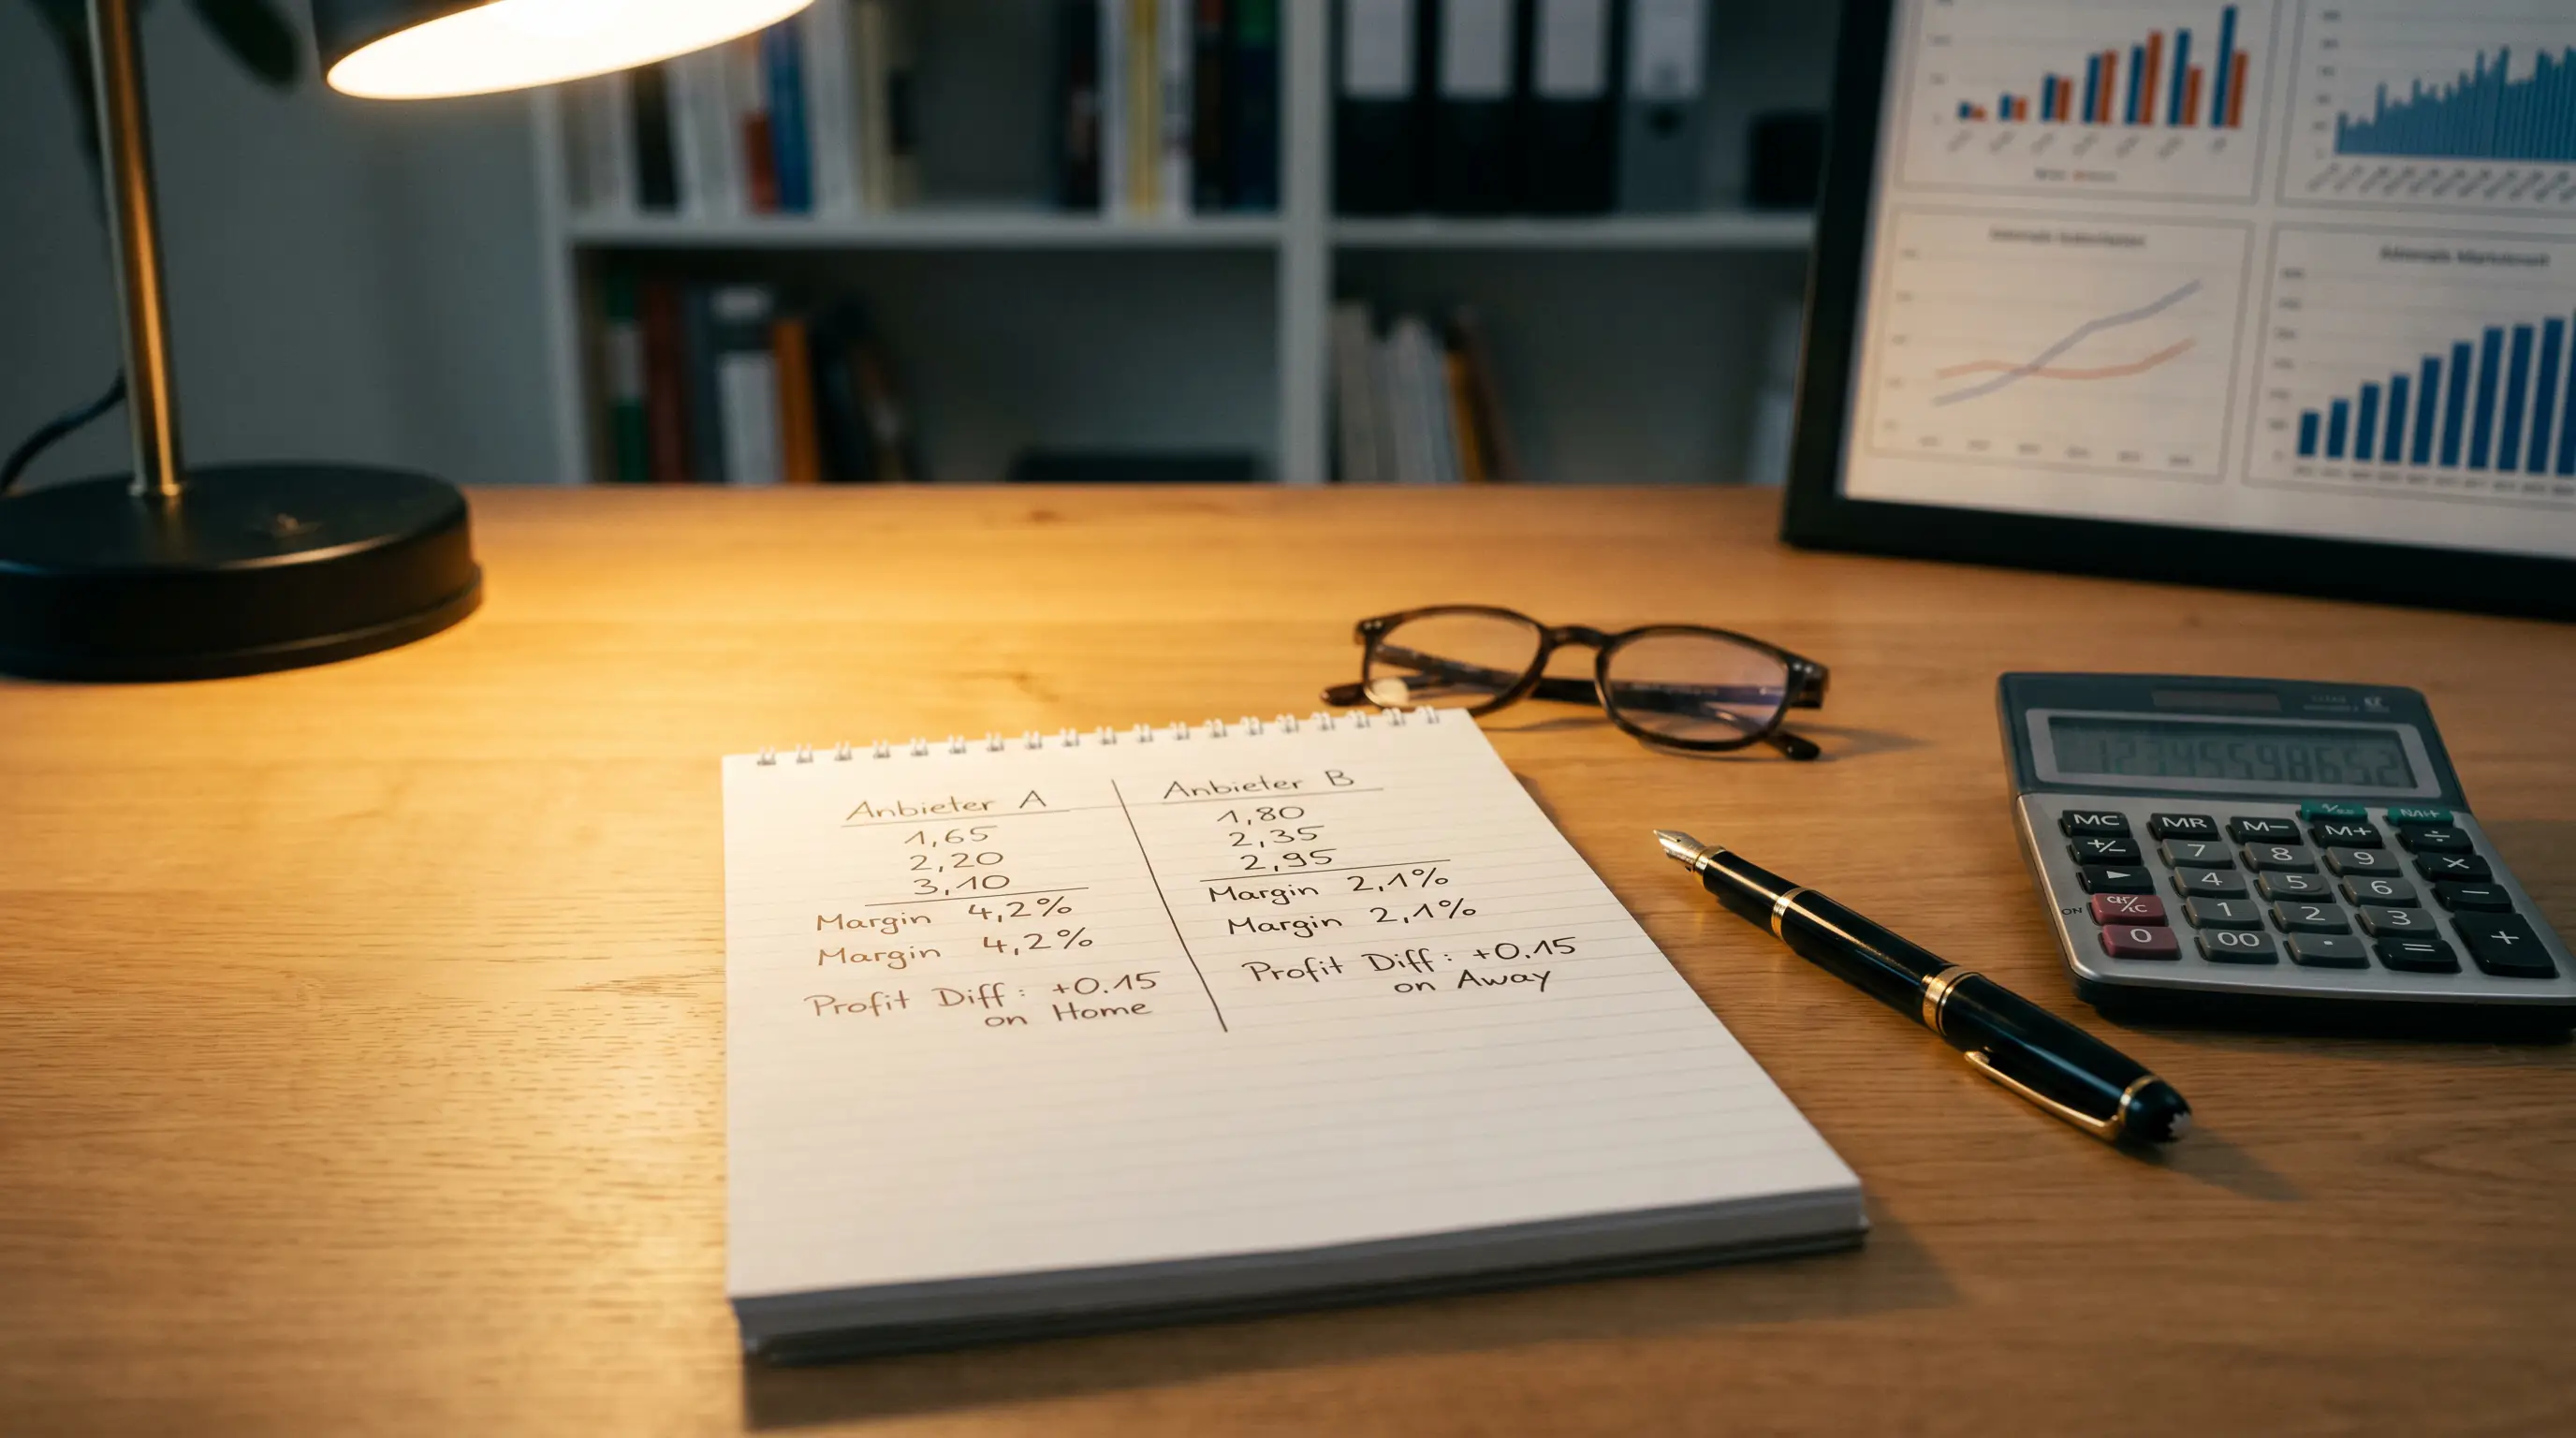 Anbieter A
1,65
2,20
3,10
Margin 4,2%
Margin 4,2%
Profit Diff: +0.15
on Home
Anbieter B
1,80
2,35
2,95
Margin 2,1%
Margin 2,1%
Profit Diff: +0.15
on Away
MC MR M- M+ ÷
+/- 7 8 9 ×
► 4 5 6 −
ON 1 2 3 +
0 00 . =